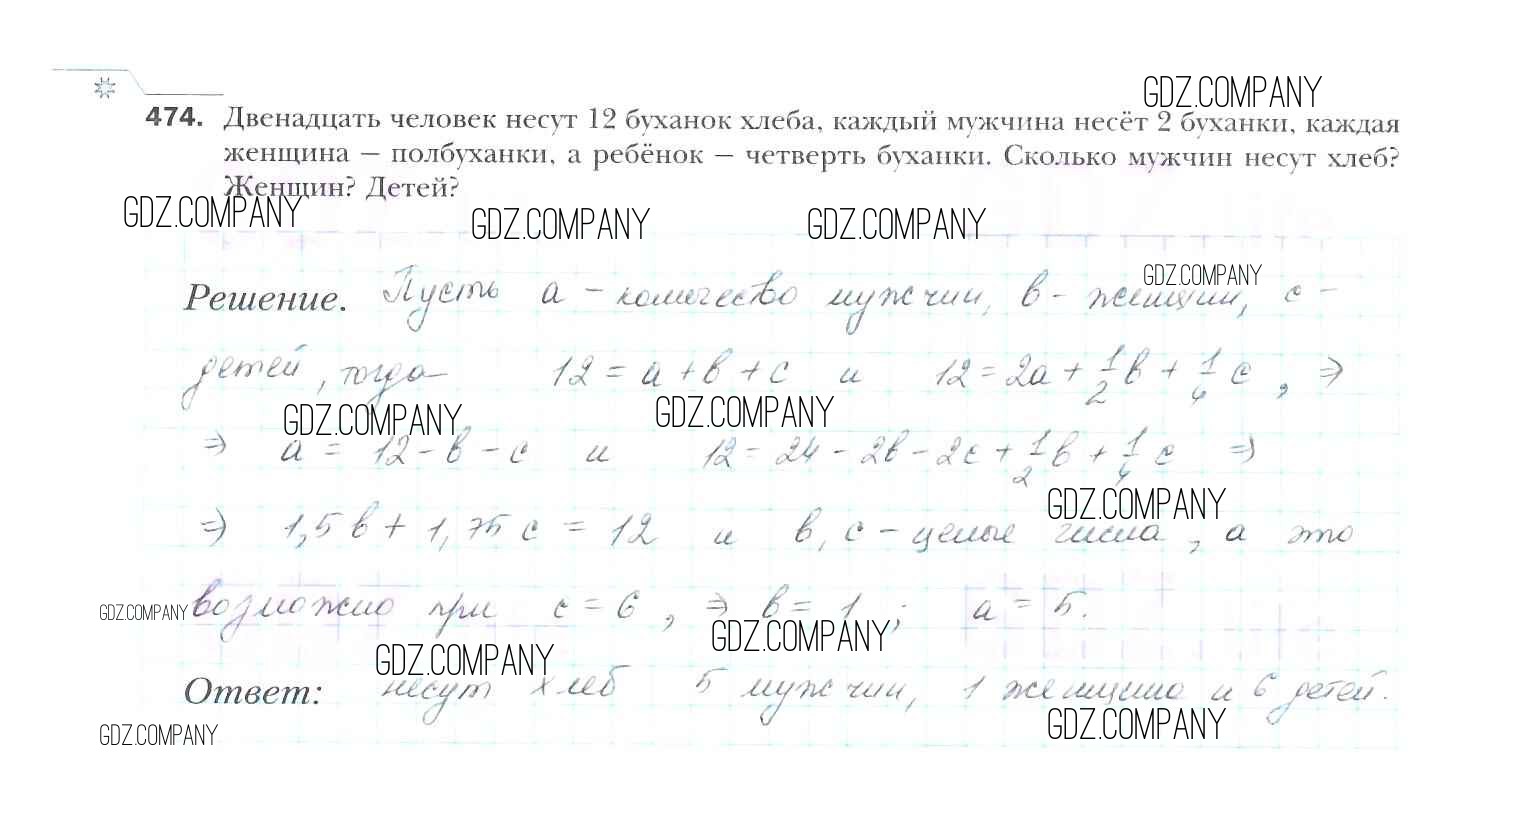 GDZ.COMPANY
474. Двенадцать человек несут 12 буханок хлеба, каждый мужчина несёт 2 буханки, каждая
женщина — полбуханки, а ребёнок — четверть буханки. Сколько мужчин несут хлеб?
Женщин? Детей?
GDZ.COMPANY GDZ.COMPANY GDZ.COMPANY
GDZ.COMPANY
Решение. Пусть a - количество мужчин, в - женщин, с -
детей, тогда 12 = a + в + c и 12 = 2a + 1/2 в + 1/4 c, ⇒
GDZ.COMPANY GDZ.COMPANY
⇒ a = 12 - в - c и 12 = 24 - 2в - 2c + 1/2 в + 1/4 c ⇒
GDZ.COMPANY
⇒ 1,5 в + 1,75 c = 12 и в, c - целые числа, а это
GDZ.COMPANY возможно при c = 6, ⇒ в = 1; a = 5.
GDZ.COMPANY GDZ.COMPANY
Ответ: несут хлеб 5 мужчин, 1 женщина и 6 детей.
GDZ.COMPANY GDZ.COMPANY